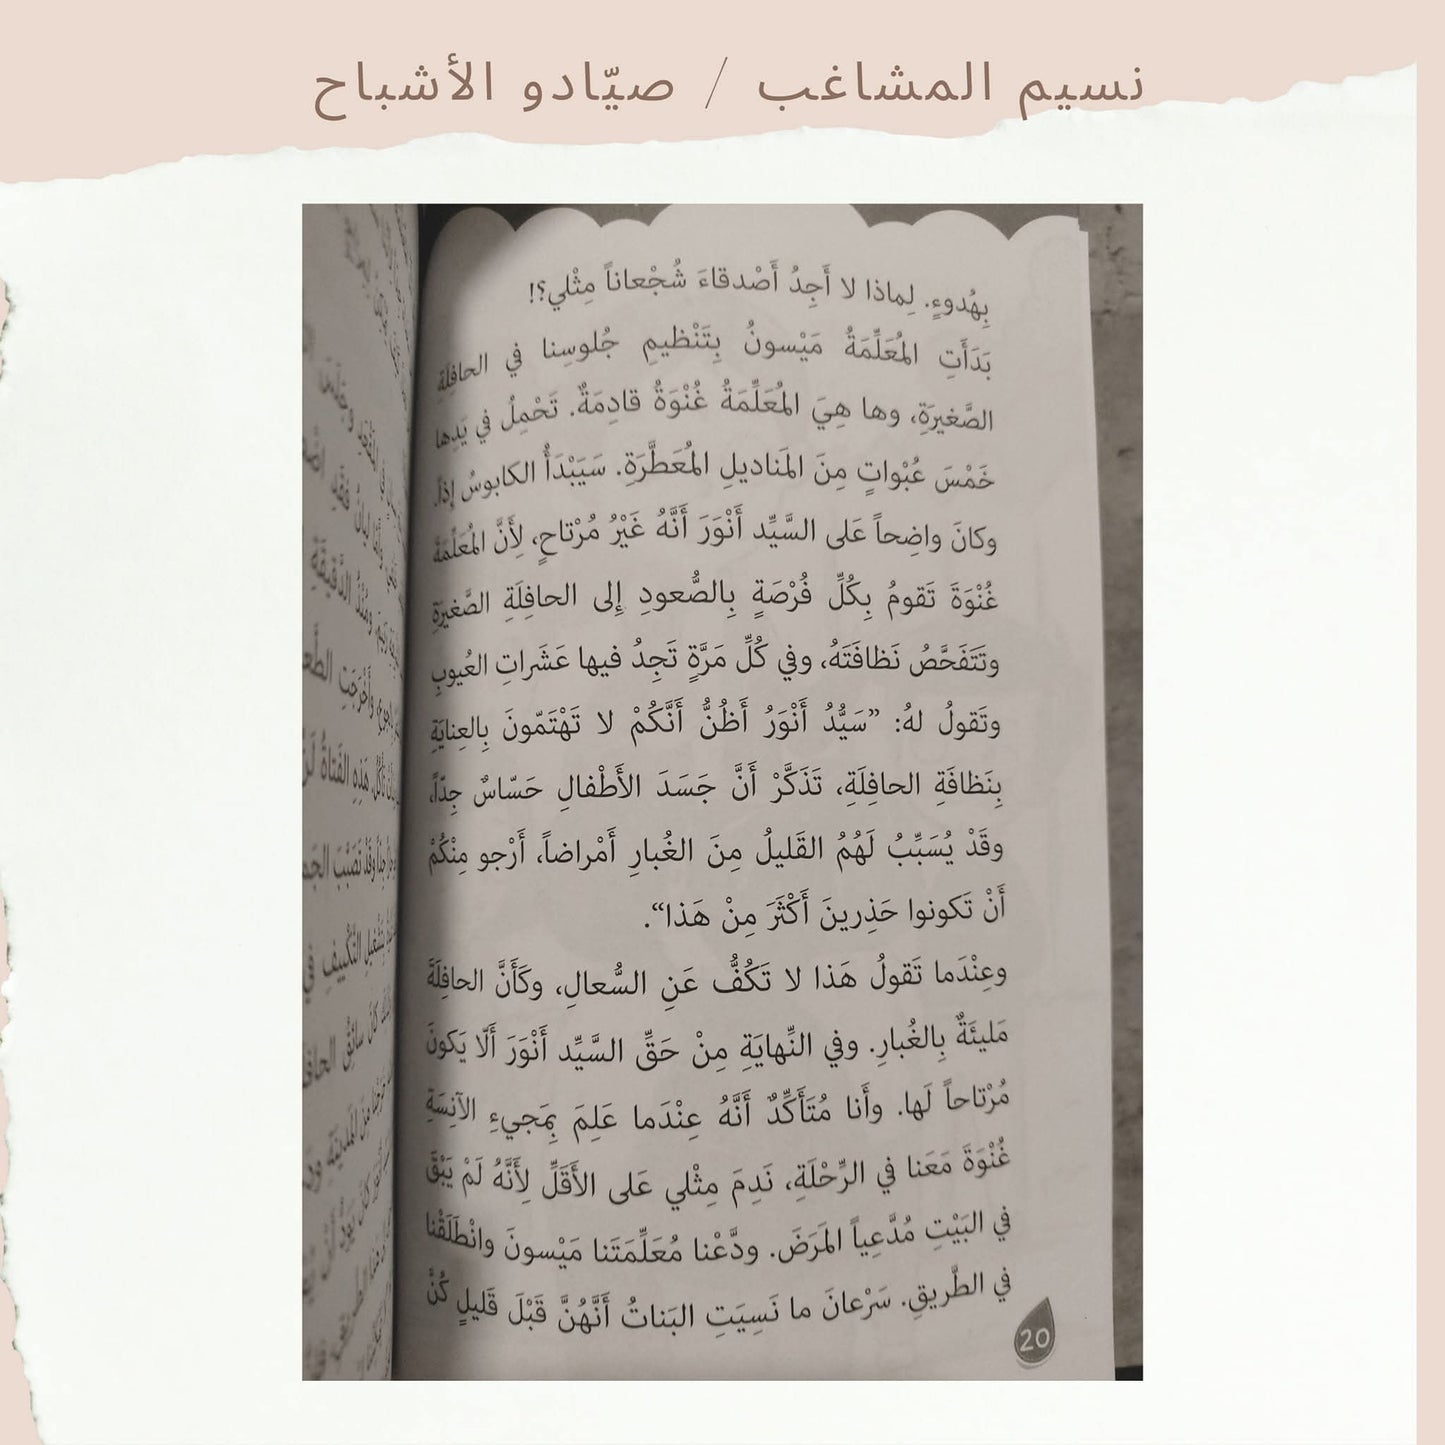 نسيم المشاغب / صيّادو الأشباح
بِهُدوءٍ. لِماذا لا أَجِدُ أَصْدقاءَ شُجْعاناً مِثْلي؟!
بَدَأَتِ المُعَلِّمَةُ مَيْسونُ بِتَنْظيمِ جُلوسِنا في الحافِلَةِ
الصَّغيرَةِ، وها هِيَ المُعَلِّمَةُ غُنْوَةُ قادِمَةٌ. تَحْمِلُ في يَدِها
خَمْسَ عُبْواتٍ مِنَ المَناديلِ المُعَطَّرَةِ. سَيَبْدَأُ الكابوسُ إِذاً.
وكانَ واضِحاً عَلى السَّيِّد أَنْوَرَ أَنَّهُ غَيْرُ مُرْتاحٍ، لِأَنَّ المُعَلِّمَةَ
غُنْوَةَ تَقومُ بِكُلِّ فُرْصَةٍ بِالصُّعودِ إِلى الحافِلَةِ الصَّغيرَةِ
وتَتَفَحَّصُ نَظافَتَهُ، وفي كُلِّ مَرَّةٍ تَجِدُ فيها عَشَراتِ العُيوبِ
وتَقولُ لهُ: ”سَيُّدُ أَنْوَرُ أَظُنُّ أَنَّكُمْ لا تَهْتَمّونَ بِالعِنايَةِ
بِنَظافَةِ الحافِلَةِ، تَذَكَّرْ أَنَّ جَسَدَ الأَطْفالِ حَسّاسٌ جِدّاً،
وقَدْ يُسَبِّبُ لَهُمُ القَليلُ مِنَ الغُبارِ أَمْراضاً، أَرْجو مِنْكُمْ
أَنْ تَكونوا حَذِرينَ أَكْثَرَ مِنْ هَذا“.
وعِنْدَما تَقولُ هَذا لا تَكُفُّ عَنِ السُّعالِ، وكَأَنَّ الحافِلَةَ
مَليئَةٌ بِالغُبارِ. وفي النِّهايَةِ مِنْ حَقِّ السَّيِّد أَنْوَرَ أَلّا يَكونَ
مُرْتاحاً لَها. وأَنا مُتَأَكِّدٌ أَنَّهُ عِنْدَما عَلِمَ بِمَجيءِ الآنِسَةِ
غُنْوَةَ مَعَنا في الرِّحْلَةِ، نَدِمَ مِثْلي عَلى الأَقَلِّ لِأَنَّهُ لَمْ يَبْقَ
في البَيْتِ مُدَّعِياً المَرَضَ. ودَّعْنا مُعَلِّمَتَنا مَيْسونَ وانْطَلَقْنا
في الطَّريقِ. سَرْعانَ ما نَسِيَتِ البَناتُ أَنَّهُنَّ قَبْلَ قَليلٍ كُنَّ
20